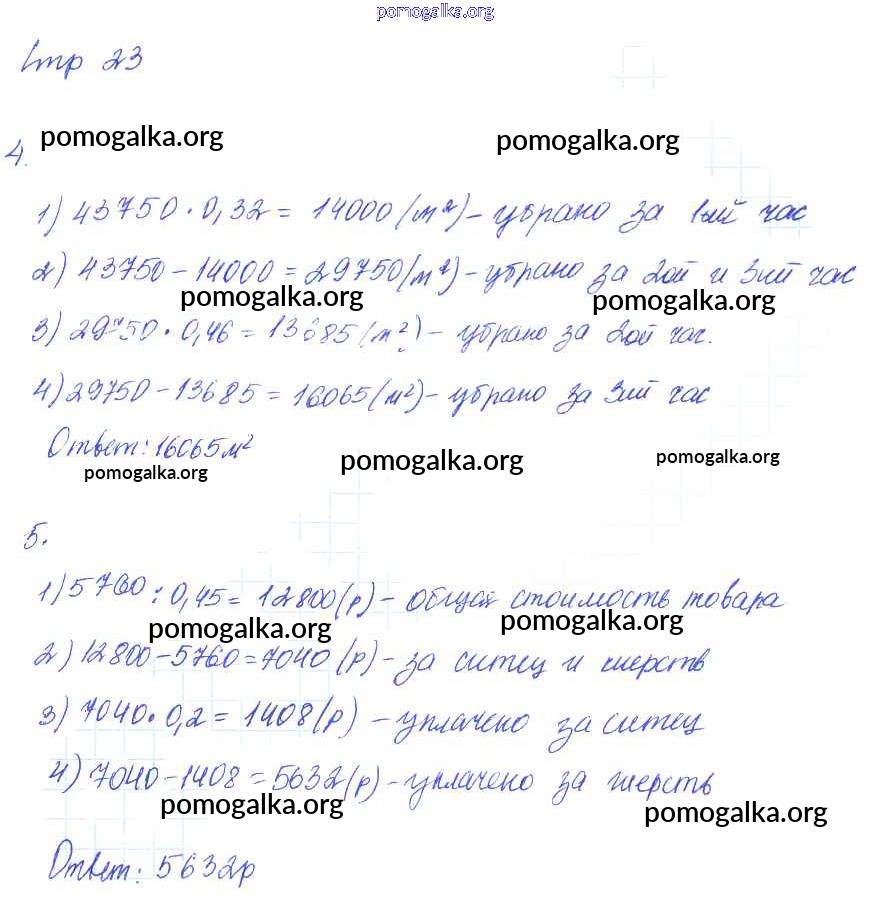 pomogalka.org
Стр 23
pomogalka.org pomogalka.org
4.
1) 43750 · 0,32 = 14000 (м²) - убрано за 1ый час
2) 43750 - 14000 = 29750 (м²) - убрано за 2ой и 3ий час
pomogalka.org pomogalka.org
3) 29750 · 0,46 = 13685 (м²) - убрано за 2ой час.
4) 29750 - 13685 = 16065 (м²) - убрано за 3ий час
Ответ: 16065 м²
pomogalka.org pomogalka.org pomogalka.org
5.
1) 5760 : 0,45 = 12800 (р) - общая стоимость товара
pomogalka.org pomogalka.org
2) 12800 - 5760 = 7040 (р) - за ситец и шерсть
3) 7040 · 0,2 = 1408 (р) - уплачено за ситец
4) 7040 - 1408 = 5632 (р) - уплачено за шерсть
pomogalka.org pomogalka.org
Ответ: 5632р